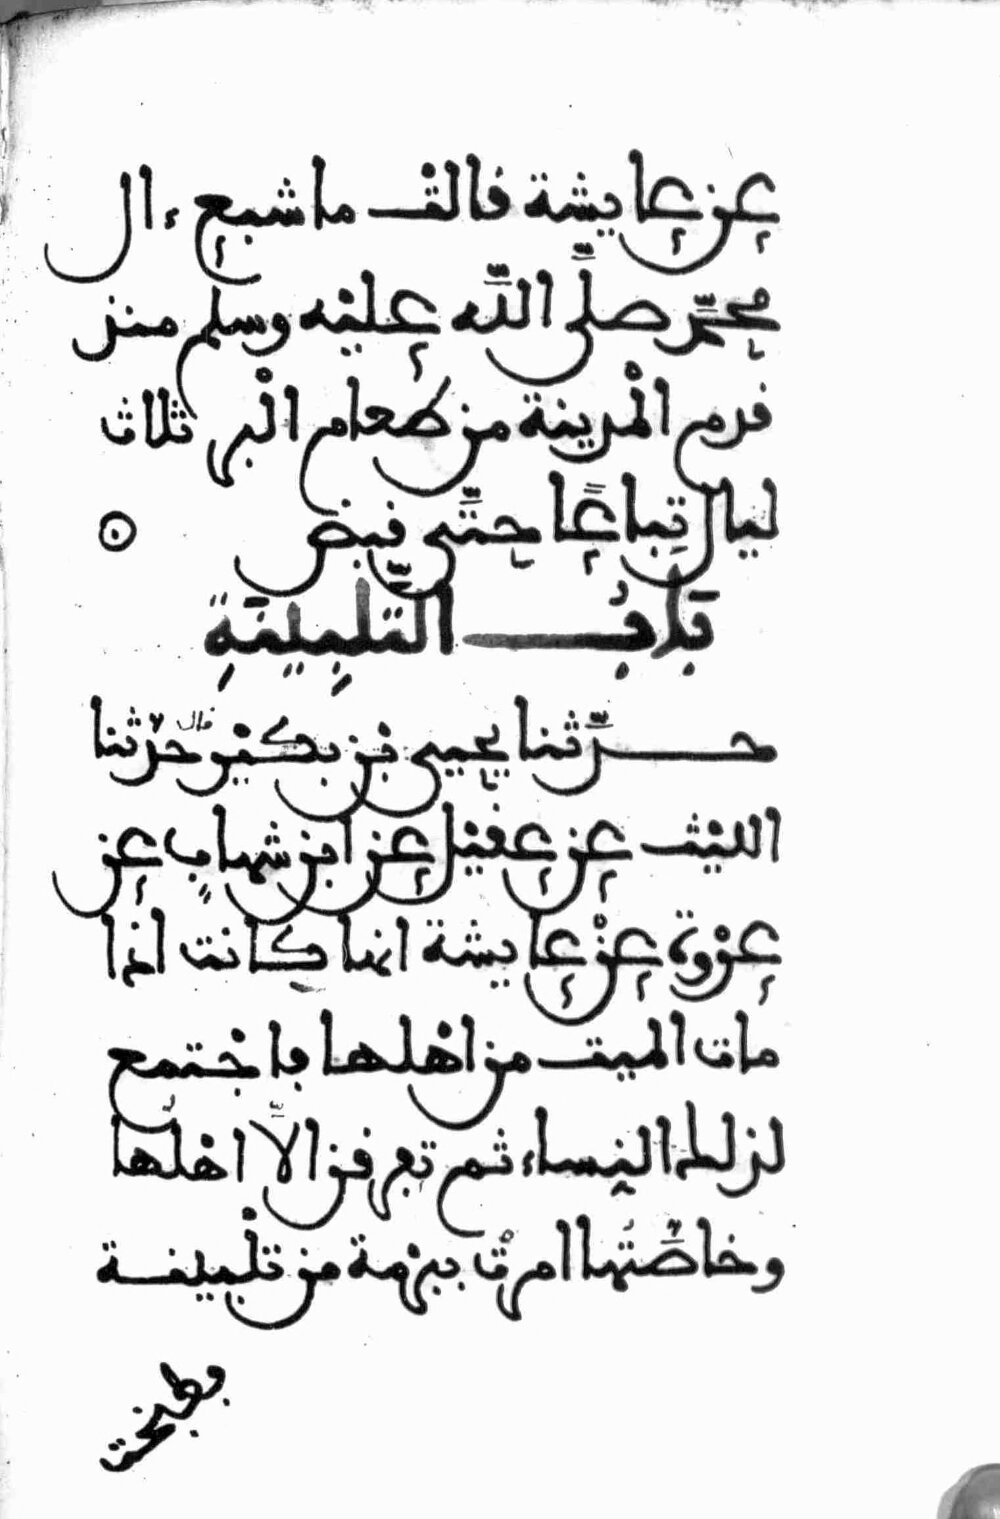 عن عايشة قالت ما شبع ءال
محمد صلَّى اللَّه عليْه وسلم منذ
قدم الْمدينة من طعام الْبر ثلاث
ليال تِباعًا حتَّى قبض
بَابُ التَّلْبِينَةِ
حدَّثنا يحيى بن بكيْر قال حدثنا
الليْث عن عقيْل عن ابن شهابٍ عن
عرْوة عنْ عايشة انها كانت اذا
مات الميت من اهْلها فاجْتمع
لذلك النِساء ثم تفرقن الَّا اهْلُها
وخاصَّتُها امرتْ ببرْمة من تلْبينة
فطبخت